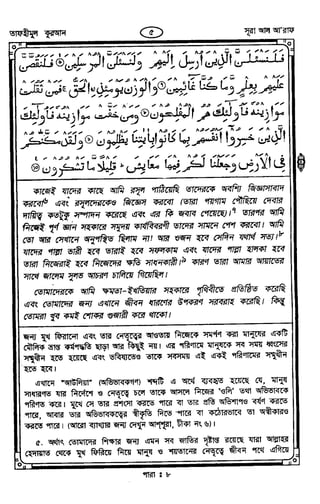 তাফহীমুল কুরআন
৫
সূরা আল আ'রাফ
فَلَنَسْـَٔلَنَّ الَّذِيْنَ اُرْسِلَ اِلَيْهِمْ وَلَنَسْـَٔلَنَّ الْمُرْسَلِيْنَ ۝ فَلَنَقُصَّنَّ
عَلَيْهِمْ بِعِلْمٍ وَّمَا كُنَّا غَآئِبِيْنَ ۝ وَالْوَزْنُ يَوْمَئِذِ ۨالْحَقُّ ۚ فَمَنْ ثَقُلَتْ
مَوَازِيْنُهٗ فَاُولٰٓئِكَ هُمُ الْمُفْلِحُوْنَ ۝ وَمَنْ خَفَّتْ مَوَازِيْنُهٗ فَاُولٰٓئِكَ
الَّذِيْنَ خَسِرُوْٓا اَنْفُسَهُمْ بِمَا كَانُوْا بِاٰيٰتِنَا يَظْلِمُوْنَ ۝ وَلَقَدْ مَكَّنّٰكُمْ
فِى الْاَرْضِ وَجَعَلْنَا لَكُمْ فِيْهَا مَعَايِشَ ؕ قَلِيْلًا مَّا تَشْكُرُوْنَ ۝
কাজেই যাদের কাছে আমি রসূল পাঠিয়েছি তাদেরকে অবশ্যি জিজ্ঞাসাবাদ
করবো৬ এবং রসূলদেরকেও জিজ্ঞেস করবো (তারা পয়গাম পৌঁছিয়ে দেবার
দায়িত্ব কতটুকু সম্পাদন করেছে এবং এর কি জবাব পেয়েছে)।৭ তারপর আমি
নিজেই পূর্ণ জ্ঞান সহকারে সমুদয় কার্যবিবরণী তাদের সামনে পেশ করবো। আমি
তো আর সেখানে অনুপস্থিত ছিলাম না! আর ওজন হবে সেদিন যথার্থ সত্য।৮
যাদের পাল্লা ভারী হবে তারাই হবে সফলকাম এবং যাদের পাল্লা হালকা হবে
তারা নিজেরাই হবে নিজেদের ক্ষতি সাধনকারী।৯ কারণ তারা আমার আয়াতের
সাথে জালেম সুলভ আচরণ চালিয়ে গিয়েছিল।
তোমাদেরকে আমি ক্ষমতা-ইখতিয়ার সহকারে পৃথিবীতে প্রতিষ্ঠিত করেছি
এবং তোমাদের জন্য এখানে জীবন ধারণের উপকরণ সরবরাহ করেছি। কিন্তু
তোমরা খুব কমই শোকর গুজারী করে থাকো।
জন্য মুখ ফিরানো এবং তার নেতৃত্বের আওতায় নিজেকে সমর্পণ করা মানুষের একটি
মৌলিক ভ্রান্ত কর্মপদ্ধতি ছাড়া আর কিছুই নয়। এর পরিণামে মানুষকে সব সময় ধ্বংসের
সম্মুখীন হতে হয়েছে এবং ভবিষ্যতেও তাকে সবসময় এই একই পরিণামের সম্মুখীন
হতে হবে।
এখানে "আউলিয়া" (অভিভাবকগণ) শব্দটি এ অর্থে ব্যবহৃত হয়েছে যে, মানুষ
সাধারণত যার নির্দেশে ও নেতৃত্বে চলে তাকে আসলে নিজের 'ওলি' তথা অভিভাবকে
পরিণত করে। মুখে সে তার প্রশংসা করতে পারে বা তার প্রতি অভিশাপও বর্ষণ করতে
পারে, আবার তার অভিভাবকত্বের স্বীকৃতি দিতে পারে বা কঠোরভাবে তা অস্বীকারও
করতে পারে। (আরো ব্যাখ্যার জন্য দেখুন আশ্‌শূরা, টীকা নং ৬)।
৫. অর্থাৎ তোমাদের শিক্ষার জন্য এমন সব জাতির দৃষ্টান্ত রয়েছে যারা আল্লাহর
হেদায়াত থেকে মুখ ফিরিয়ে নিয়ে মানুষ ও শয়তানের নেতৃত্বে জীবন পথে এগিয়ে
পারা : ৮